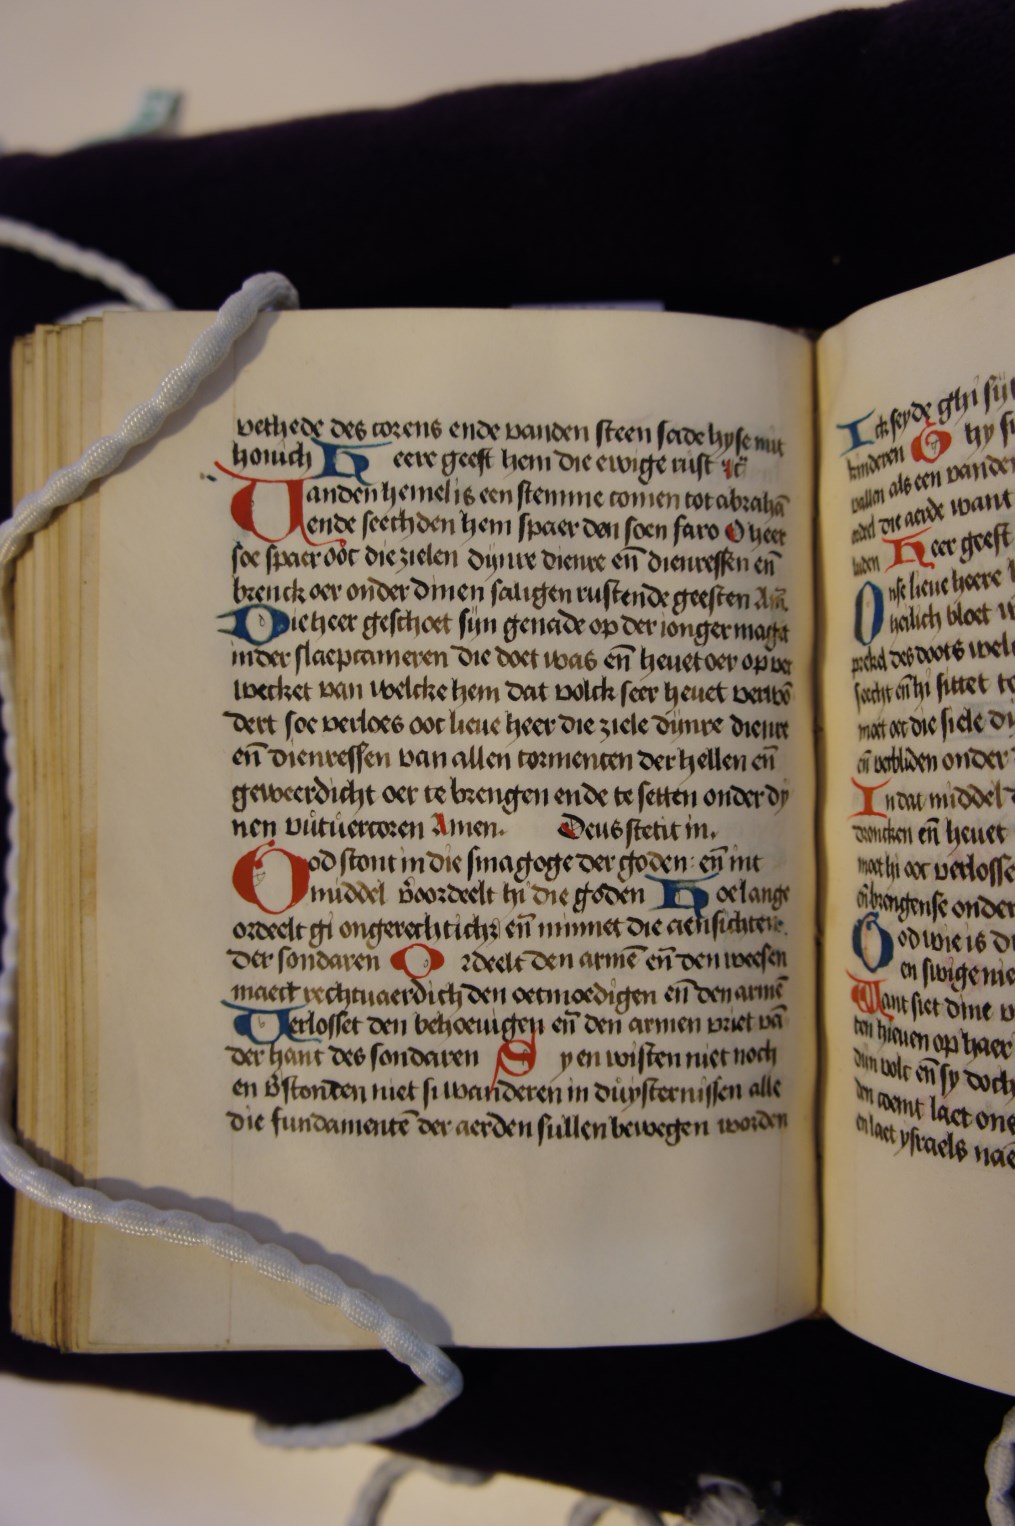 vethede des corens ende vanden steen sade hyse mit
honich Heere geeft hem die ewige rust
Uanden hemel is een stemme comen tot abrahā
ende seechden hem spaer den soen saro O heer
soe spaer ooc die zielen dynre dienre en̄ dienressen en̄
brenck oer onder dinen saligen rustende geesten Am̄
Die heer geschoet sijn genade op der ionger maget
inder slaepcameren die doet was en̄ heuet oer op ver
wecket van welcke hem dat volck seer heuet verwō
dert soe verloes ooc lieue heer die ziele dynre dienre
en̄ dienressen van allen tormenten der hellen en̄
geweerdicht oer te brengen ende te setten onder dy
nen vůtůercoren Amen. Deus stetit in.
God stont in die sinagoge der goden: en̄ int
middel v̄oordeelt hi die goden Hoe lange
ordeelt gi ongerechticheit en̄ nimmet die aensichten
der sondaren Ordeelt den armē en̄ den weesen
maect rechtuaerdich den oetmoedigen en̄ den armē
Verlosset den behoeuigen en̄ den armen vriet vā
der hant des sondaren Sy en wisten niet noch
en v̄stonden niet si wanderen in důysternissen alle
die fundamentē der aerden sullen bewegen worden
Ick seyde ghi sijt
kinderen Ghy
vallen als een vanden
die aerde want
Heer geeft
Onse lieue heere
heilich bloet
des doots
seecht en̄ hi sittet
moet oec die siele
en̄ verbliden onder
In dat middel
droncken en̄ heuet
moet hi oer verlosse
en̄ brengense onder
God wie is
en swige nie
Want siet dine
ten hieuen op haer
dijn volc en̄ sy
den coemt laet ons
en laet ysraels